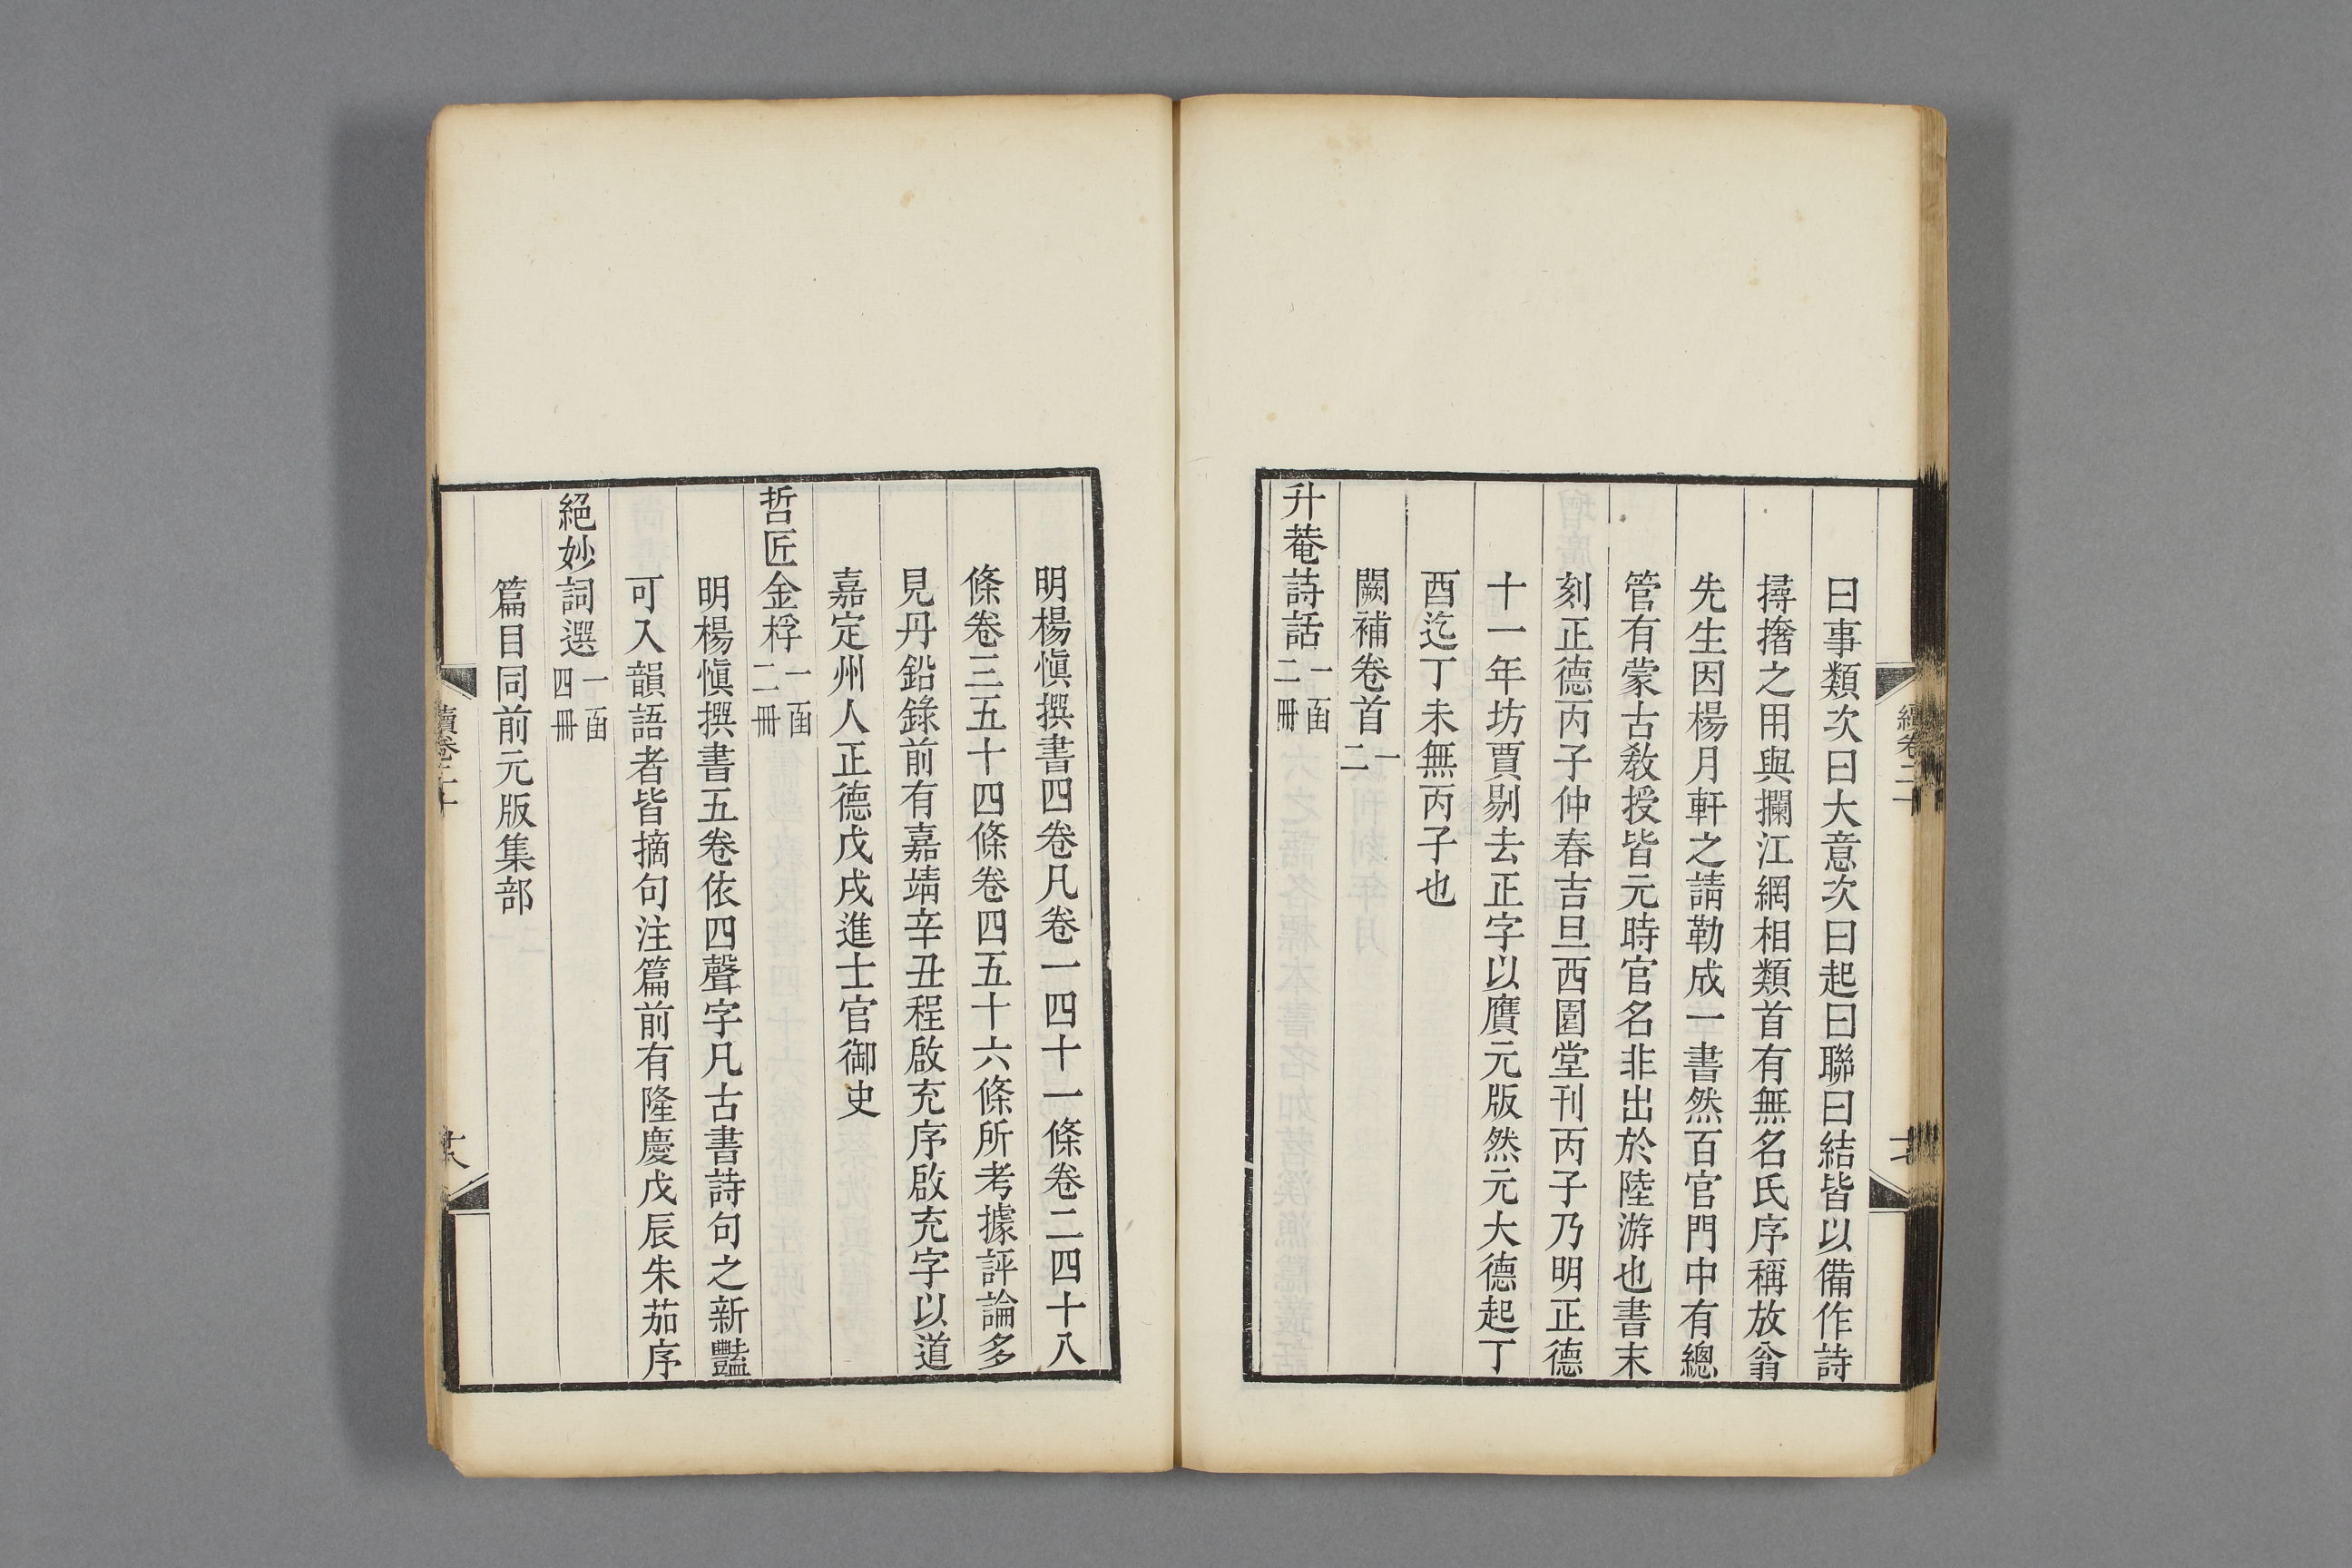 曰事類次曰大意次曰起曰聯曰結皆以備作詩
撏撦之用與攔江網相類首有無名氏序稱放翁
先生因楊月軒之請勒成一書然百官門中有總
管有蒙古敎授皆元時官名非出於陸游也書末
刻正德丙子仲春吉旦西園堂刊丙子乃明正德
十一年坊賈剔去正字以贗元版然元大德起丁
酉迄丁未無丙子也
闕補卷首一二
升菴詩話一函二冊
明楊愼撰書四卷凡卷一四十一條卷二四十八
條卷三五十四條卷四五十六條所考據評論多
見丹鉛錄前有嘉靖辛丑程啟充序啟充字以道
嘉定州人正德戊戌進士官御史
哲匠金桴一函二冊
明楊愼撰書五卷依四聲字凡古書詩句之新豔
可入韻語者皆摘句注篇前有隆慶戊辰朱茹序
絕妙詞選一函四冊
篇目同前元版集部